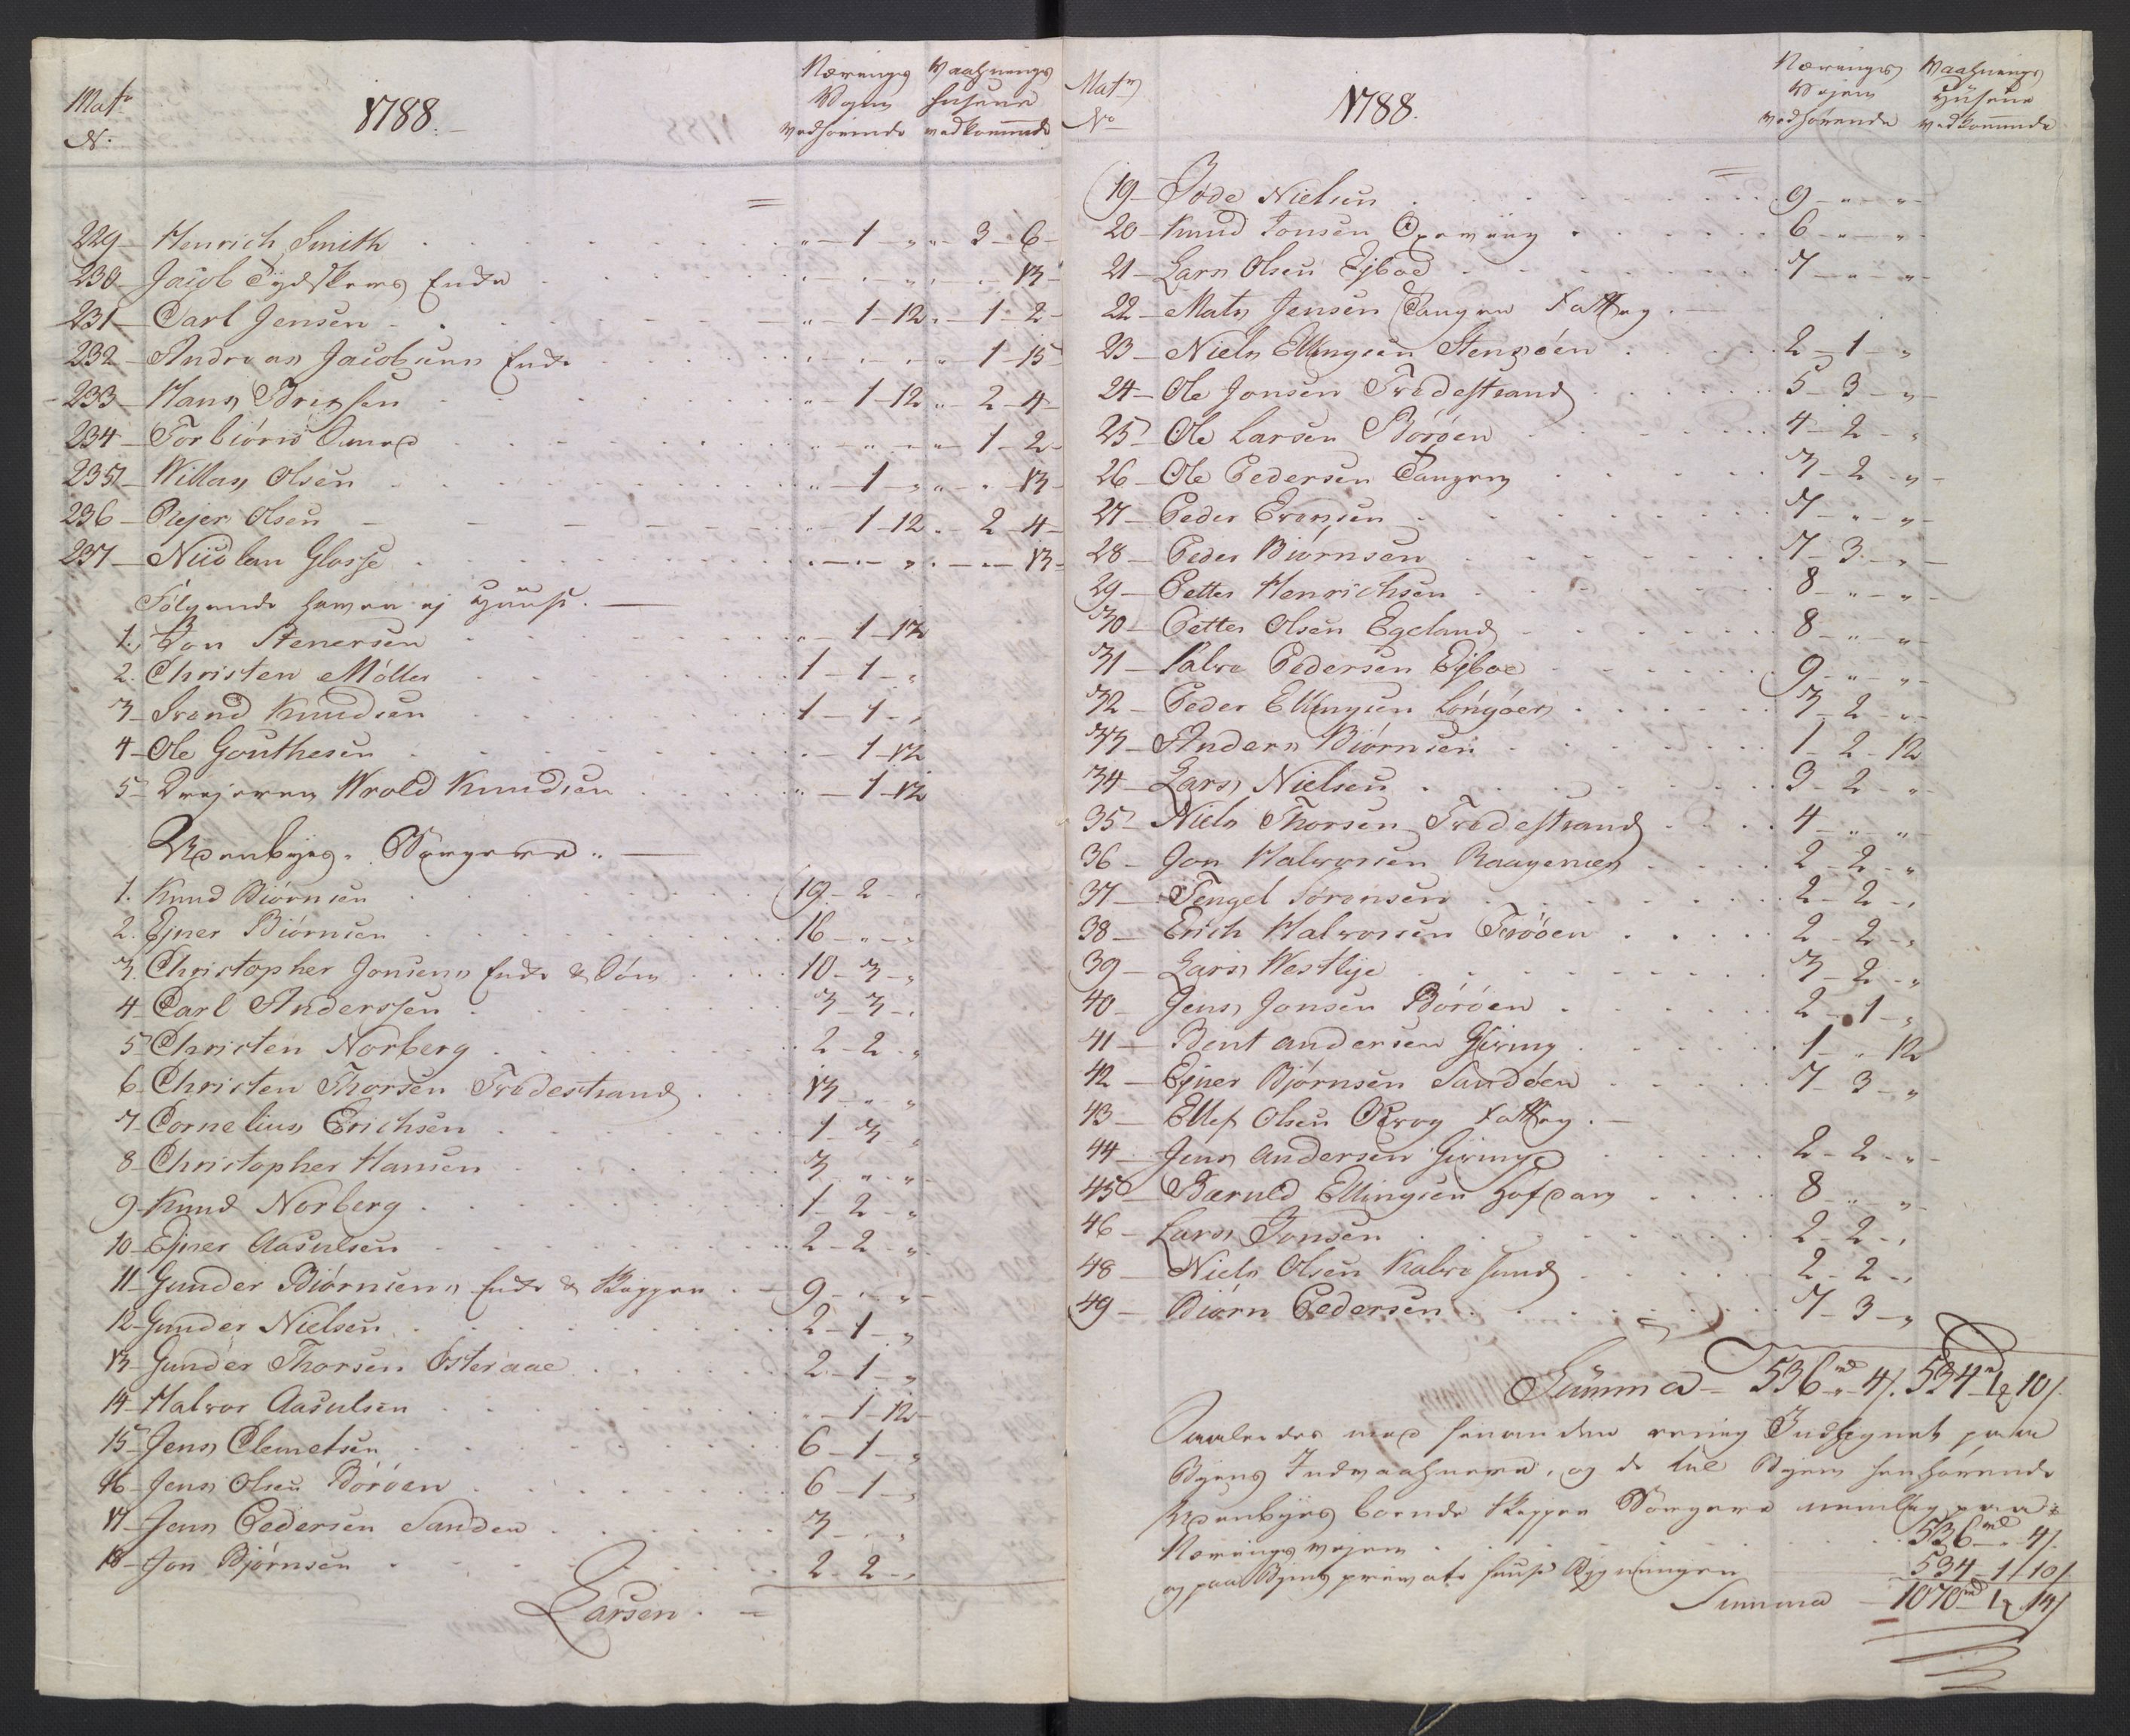 Matr No 1788. Nærings Vejen vedhørende Vaahnings Husene vedkommende
229 – Henrich Smith „ – 1 – „ „ – 3 – 6 –
230 – Jacob Tydskers Enke „ – „ – „ „ – „ – 13 –
231 – Carl Jensen „ – 1 – 12 „ – 1 – 2 –
232 – Andreas Jacobsens Enke „ – „ – „ „ – 1 – 15
233 – Hans Brixsen „ – 1 – 12 „ – 2 – 4 –
234 – Torbiørn „ – „ – „ „ – 1 – 2 –
235 – Willas Olsen „ – 1 – „ „ – „ – 13 –
236 – Rejer Olsen „ – 1 – 12 „ – 2 – 4 –
237 – Nicolai Glosse „ – „ – „ „ – „ – 13 –
Følgende haver ej Huuse. –
1. Jon Stenersen „ – 1 – 12
2. Christen Møller 1 – 1 – „
3 – Svend Knudsen 1 – 1 – „
4 – Ole Gouthesen „ – 1 – 12
5 – Drejeren Wrold Knudsen „ – 1 – 12
Udenbyes Borgere. –
1. Knud Biørnsen 19 – 2 – „
2. Ejner Biørnsen 16 – „ – „
3. Christopher Jonsens Enke & Søn 10 – 3 – „
4 – Carl Anderssen 3 – 3 – „
5 – Christen Norberg 2 – 2 – „
6 – Christen Thorsen Tvedestrand 13 – „ – „
7 – Cornelius Erichsen 1 – 3 – „
8 – Christopher Hansen 3 – „ – „
9 – Knud Norberg 1 – 2 – „
10 – Ejner Aasulsen 2 – 2 – „
11 – Gunder Biørnsens Enke & Skipper 9 – „ – „
12 – Gunder Nielsen 2 – 1 – „
13 – Gunder Thorsen Østeraae 2 – 1 – „
14 – Halvor Aasulsen „ – 1 – 12 –
15 – Jens Clemetsen 6 – 1 – „
16 – Jens Olsen Borøen 6 – 1 – „
17 – Jens Pedersen Sanden 3 – „ – „
18 – Jon Bjørnsen 2 – 2 – „
Larsen. –
Matr No 1788. Nærings Vejen vedhørende Vaahnings Husene vedkommende
19 – Jøde Nielsen 9 – „ – „
20 – Knud Jonsen 6 – „ – „
21 – Lars Olsen Ejboe 7 – „ – „
22 – Mats Jensen Tangen Fattig. –
23 – Niels Ellingsen Stensøen 2 – 1 – „
24 – Ole Jonsen Tvedestrand 5 – 3 – „
25 – Ole Larsen Borøen 4 – 2 – „
26 – Ole Pedersen Tangen 3 – 2 – „
27 – Peder Evensen 7 – „ – „
28 – Peder Biørnsen 7 – 3 – „
29 – Petter Henrichsen 8 – „ – „
30 – Petter Olsen Egeland 8 – „ – „
31 – Salve Pedersen Ejboe 9 – „ – „
32 – Peder Ellingsen Longøen 3 – 2 – „
33 – Anders Biørnsen 1 – 2 – 12
34 – Lars Nielsen 3 – 2 – „
35 – Niels Thorsen Tvedestrand 4 – „ – „
36 – Jon Halvorsen Raagenæs 2 – 2 – „
37 – Tengel Sørensen 2 – 2 – „
38 – Erich Halvorsen Furøen 2 – 2 – „
39 – Lars Westlye 3 – 2 – „
40 – Jens Jonsen Borøen 2 – 1 – „
41 – Bent Andersen Giving 1 – „ 12
42 – Ejner Bjørnsen Sandøen 7 – 3 – „
43 – Ellef Olsen Fattig. –
44 – Jens Andersen Giving 2 – 2 – „
45 – Bæruld Ellingsen 8 – „ – „
46 – Lars Jonsen 2 – 2 – „
48 – Niels Olsen Kalvesund 2 – 2 – „
49 – Biørn Pedersen 7 – 3 – „
Summa – 536 rd „ 4 s. 534 rd 1 10 s.
Saaledes med henanden paa
Byens Indvaahnere, og de til Byen henhørende
Udenbyes boende Skipper Borgere nemlig paa
Næringsvejen 536 rd „ 4 s.
og paa Byens private Huus Bygninger 534 – 1 – 10 s.
Summa – 1070 rd 1 14 s